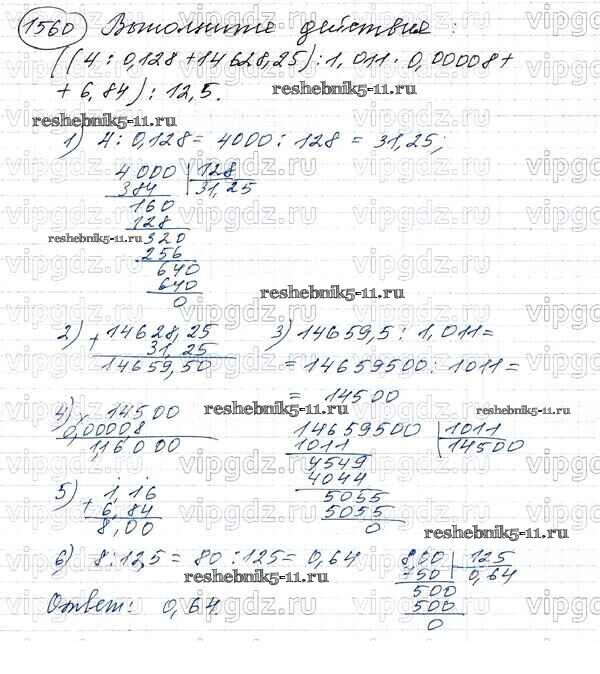 1560 Выполните действия:
((4 : 0,128 + 14628,25) : 1,011 · 0,00008 +
+ 6,84) : 12,5.
reshebnik5-11.ru
reshebnik5-11.ru
1) 4 : 0,128 = 4000 : 128 = 31,25;
4000 | 128
384 31,25
160
128
320
256
640
640
0
reshebnik5-11.ru
reshebnik5-11.ru
2) + 14628,25
31,25
14659,50
3) 14659,5 : 1,011 =
= 14659500 : 1011 =
= 14500
4) × 14500
0,00008
1,16000
reshebnik5-11.ru
reshebnik5-11.ru
14659500 | 1011
1011 14500
4549
4044
5055
5055
0
5) + 1,16
6,84
8,00
reshebnik5-11.ru
6) 8 : 12,5 = 80 : 125 = 0,64
reshebnik5-11.ru
800 | 125
750 0,64
500
500
0
Ответ: 0,64.
vipgdz.ru